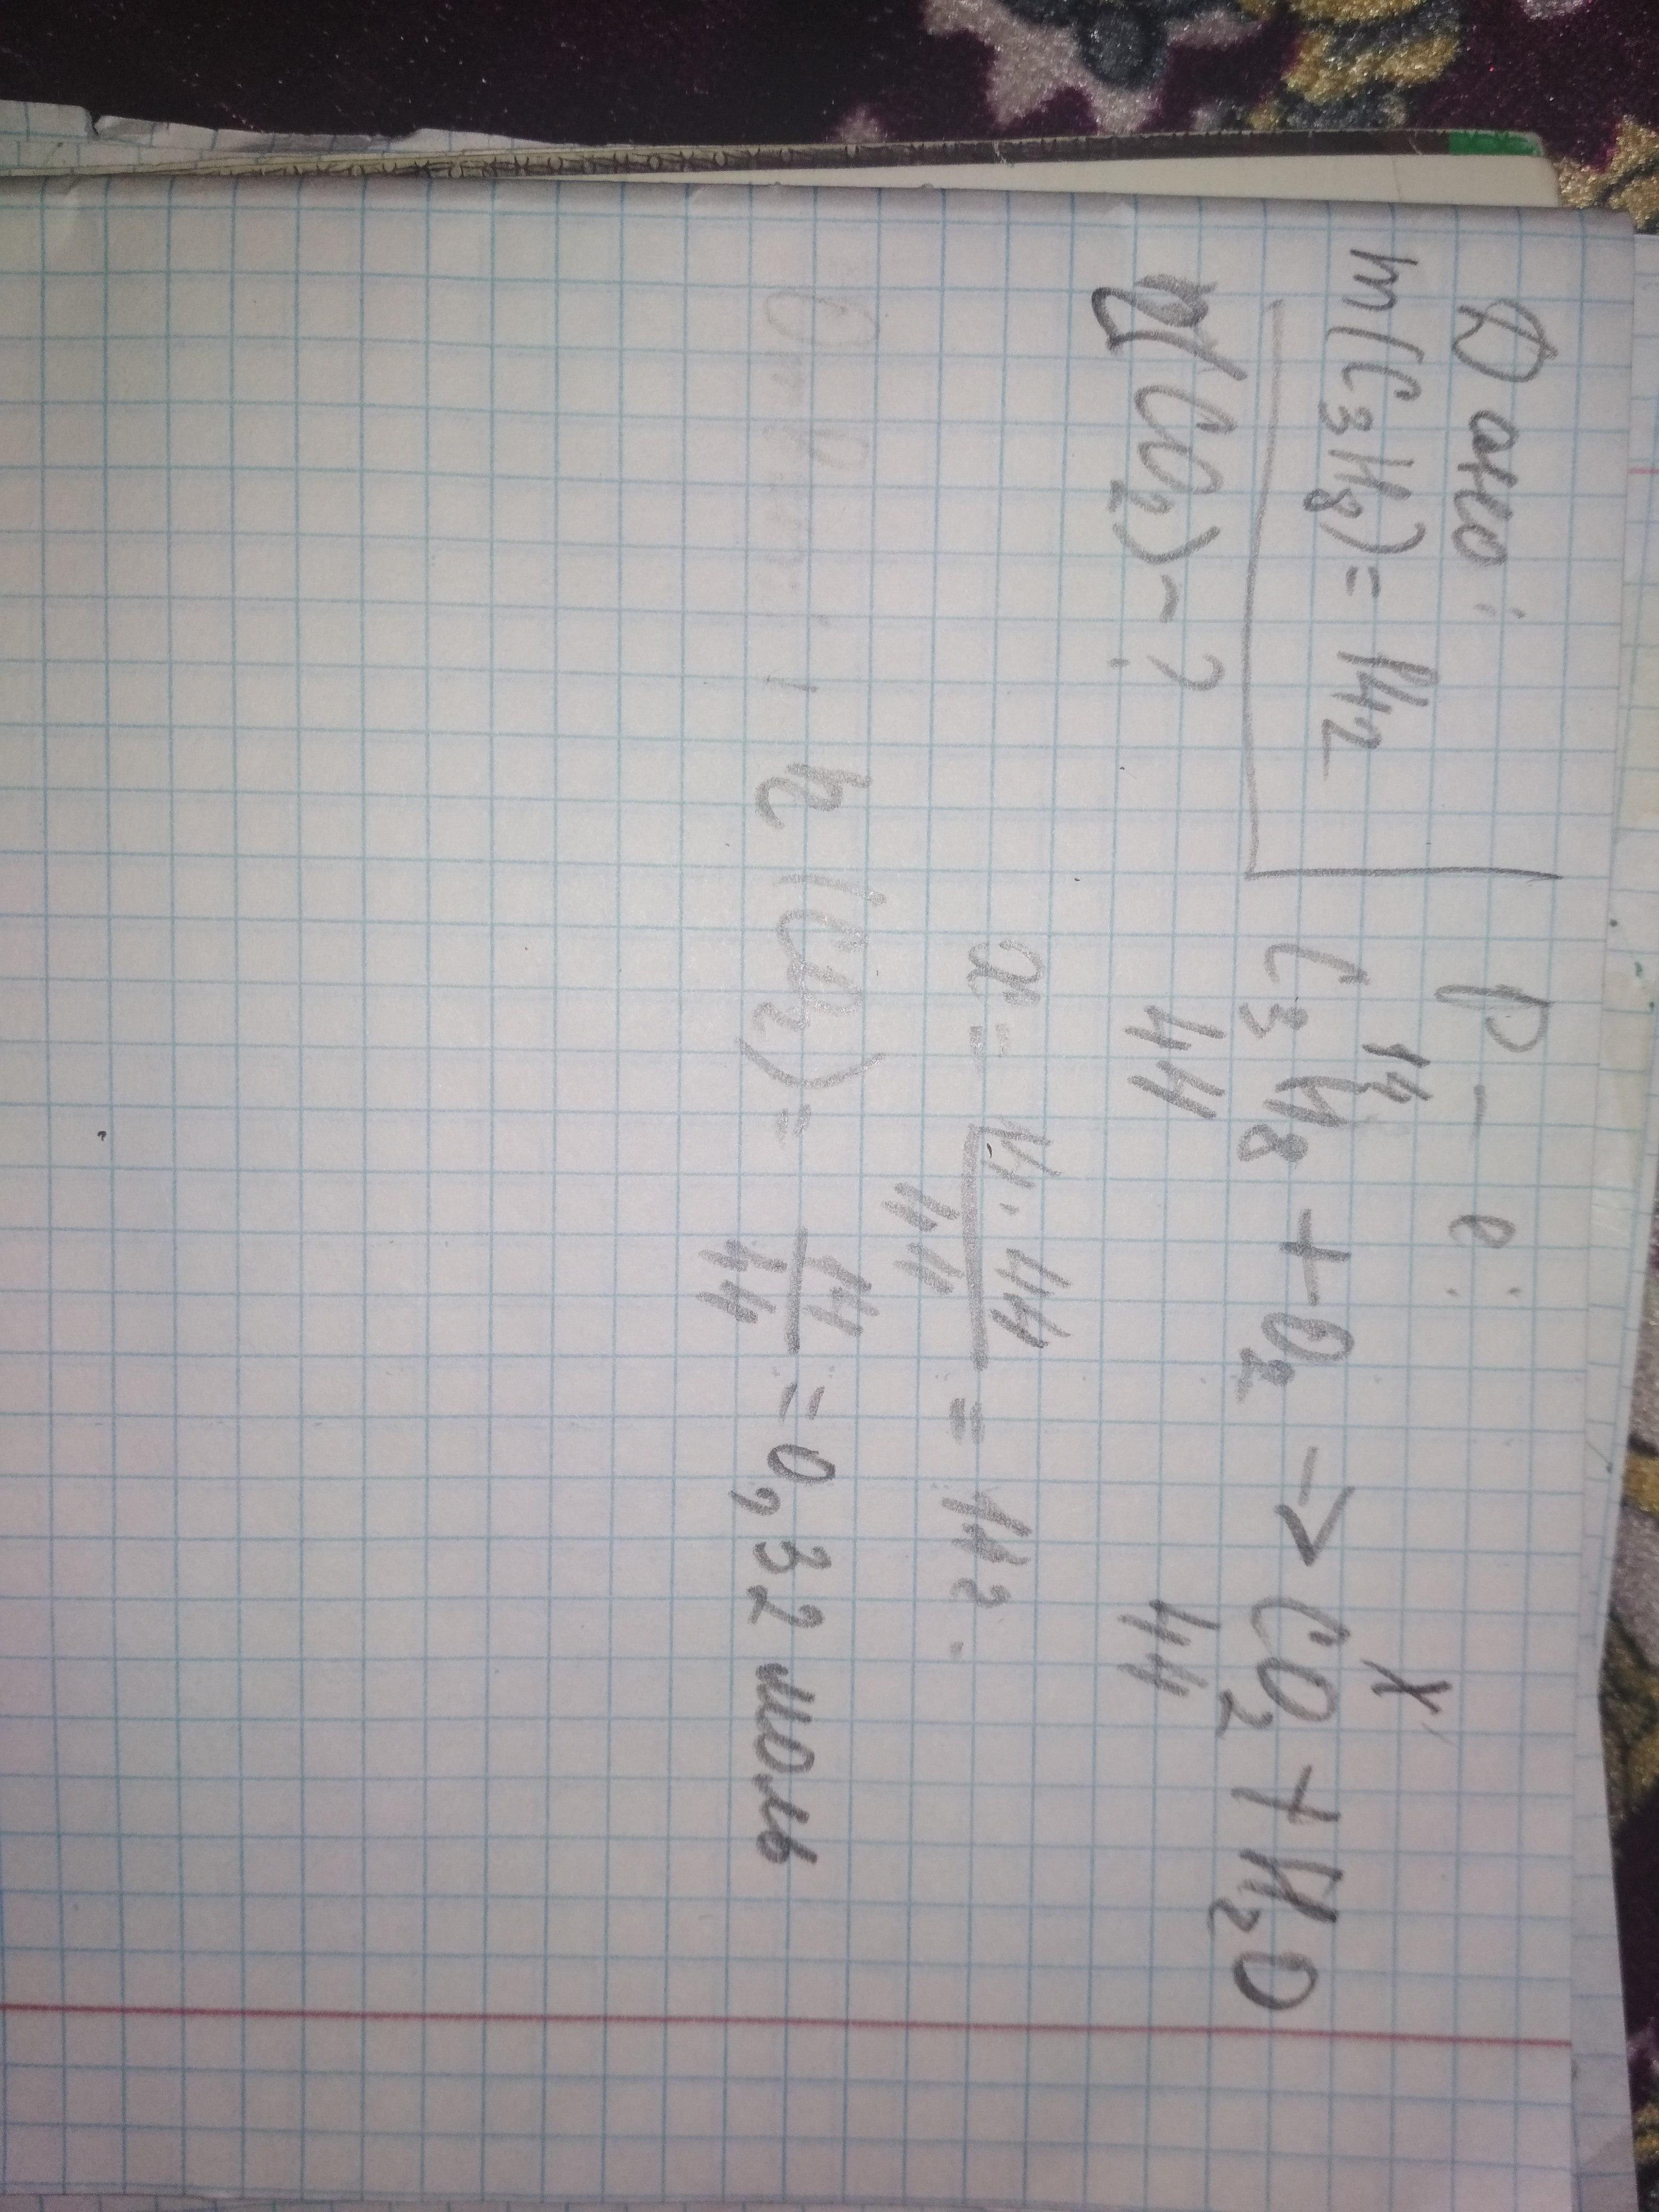 Дано:
m(C₃H₈) = 14г
η(CO₂) - ?
Р-е:
14 x
C₃H₈ + O₂ → CO₂ + H₂O
44 44
x = 14·44/44 = 14г.
η(CO₂) = 14/44 = 0,32 моль